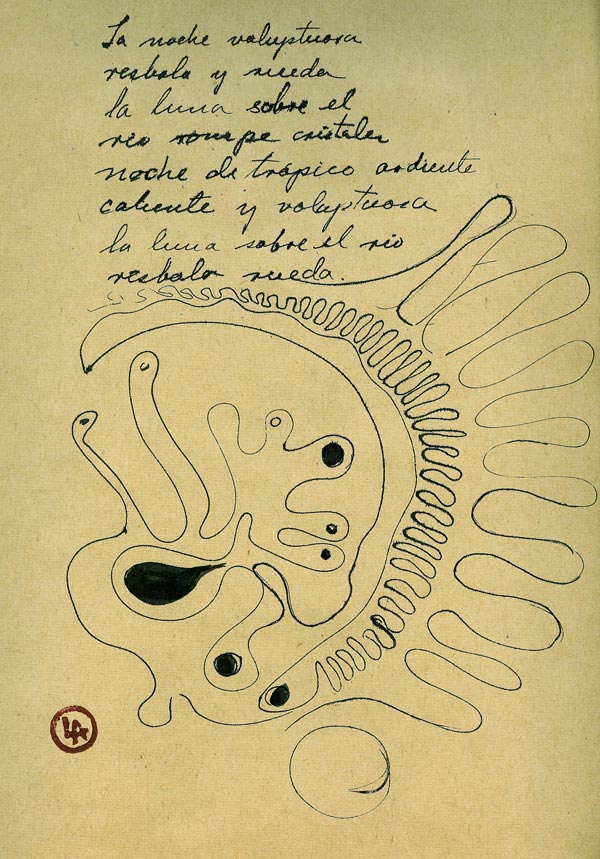 La noche voluptuosa
resbala y rueda
la luna sobre el
río rompe cristales
noche de trópico ardiente
caliente y voluptuosa
la luna sobre el río
resbala rueda.